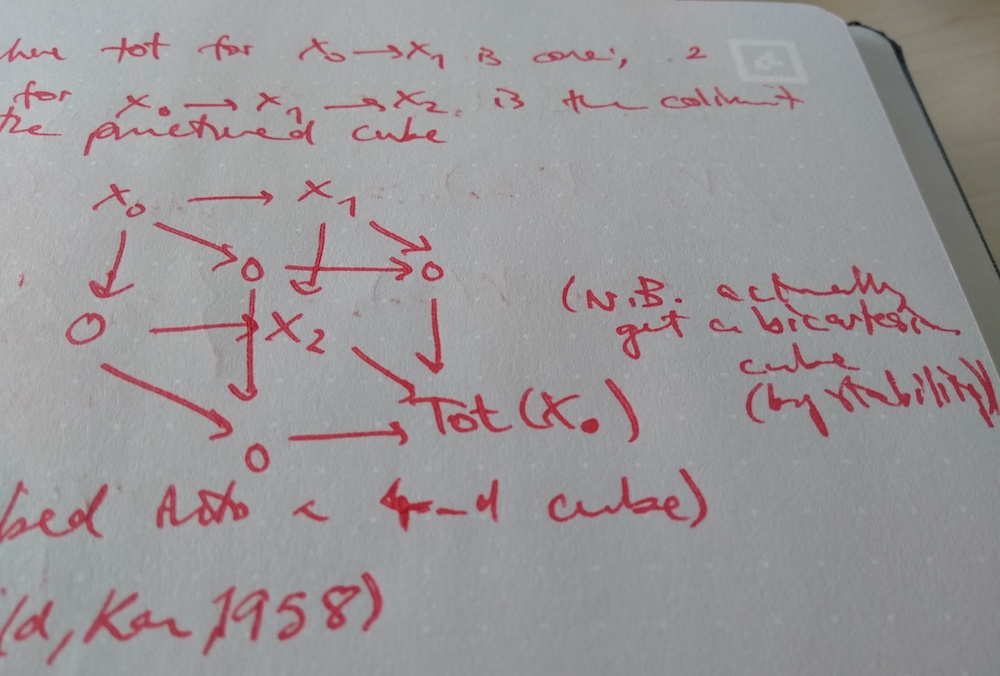 here tot for X₀ → X₁ is cone, 2
for X₀ → X₁ → X₂ is the colimit
the punctured cube
X₀ → X₁
0 → 0
0 → X₂
0 → Tot(X•)
(N.B. actually
get a bicartesian
cube
(by stability))
bed into a 4-d cube)
ld, Kan, 1958)